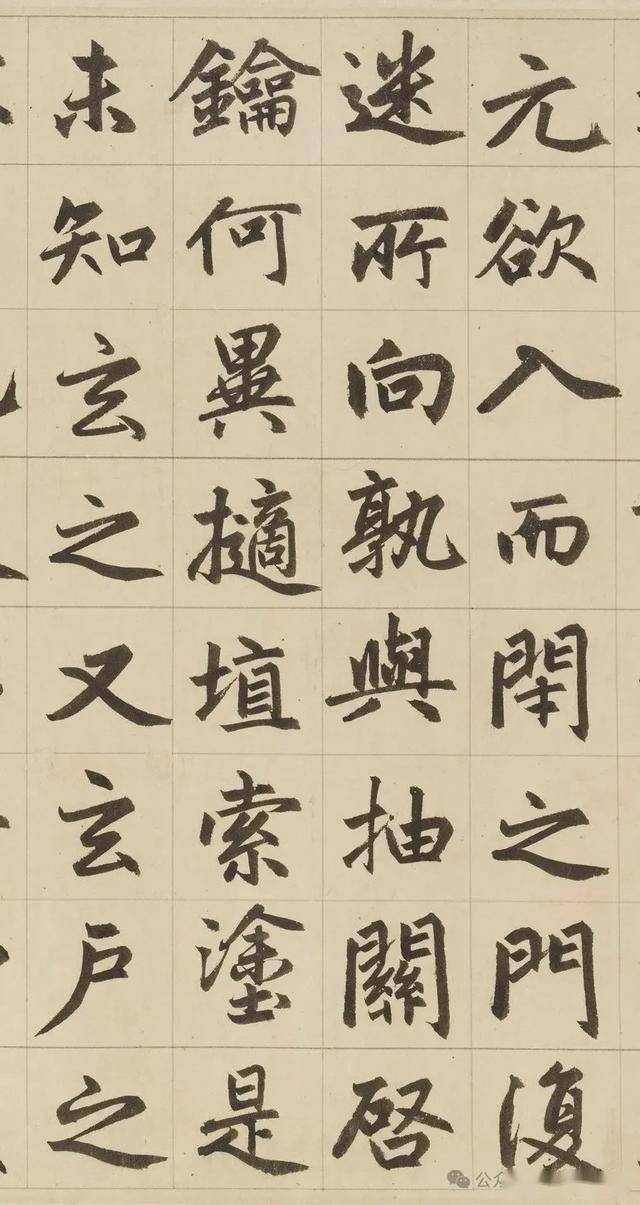 元欲入而閇之門復
迷所向孰與抽關啓
鑰何異擿埴索塗是
未知玄之又玄户之
公众